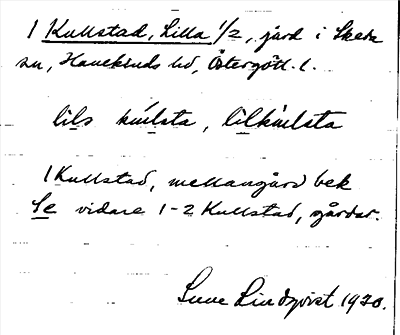 1 Kullstad, Lilla 1/2, jord i Skeda
sn, Hanekinds hd, Östergötl. l.
lils kulsta, lilkulsta
1 Kullstad, mellangård bek
Se vidare 1-2 Kullstad, gårdar.
Sune Lindqvist 1920.